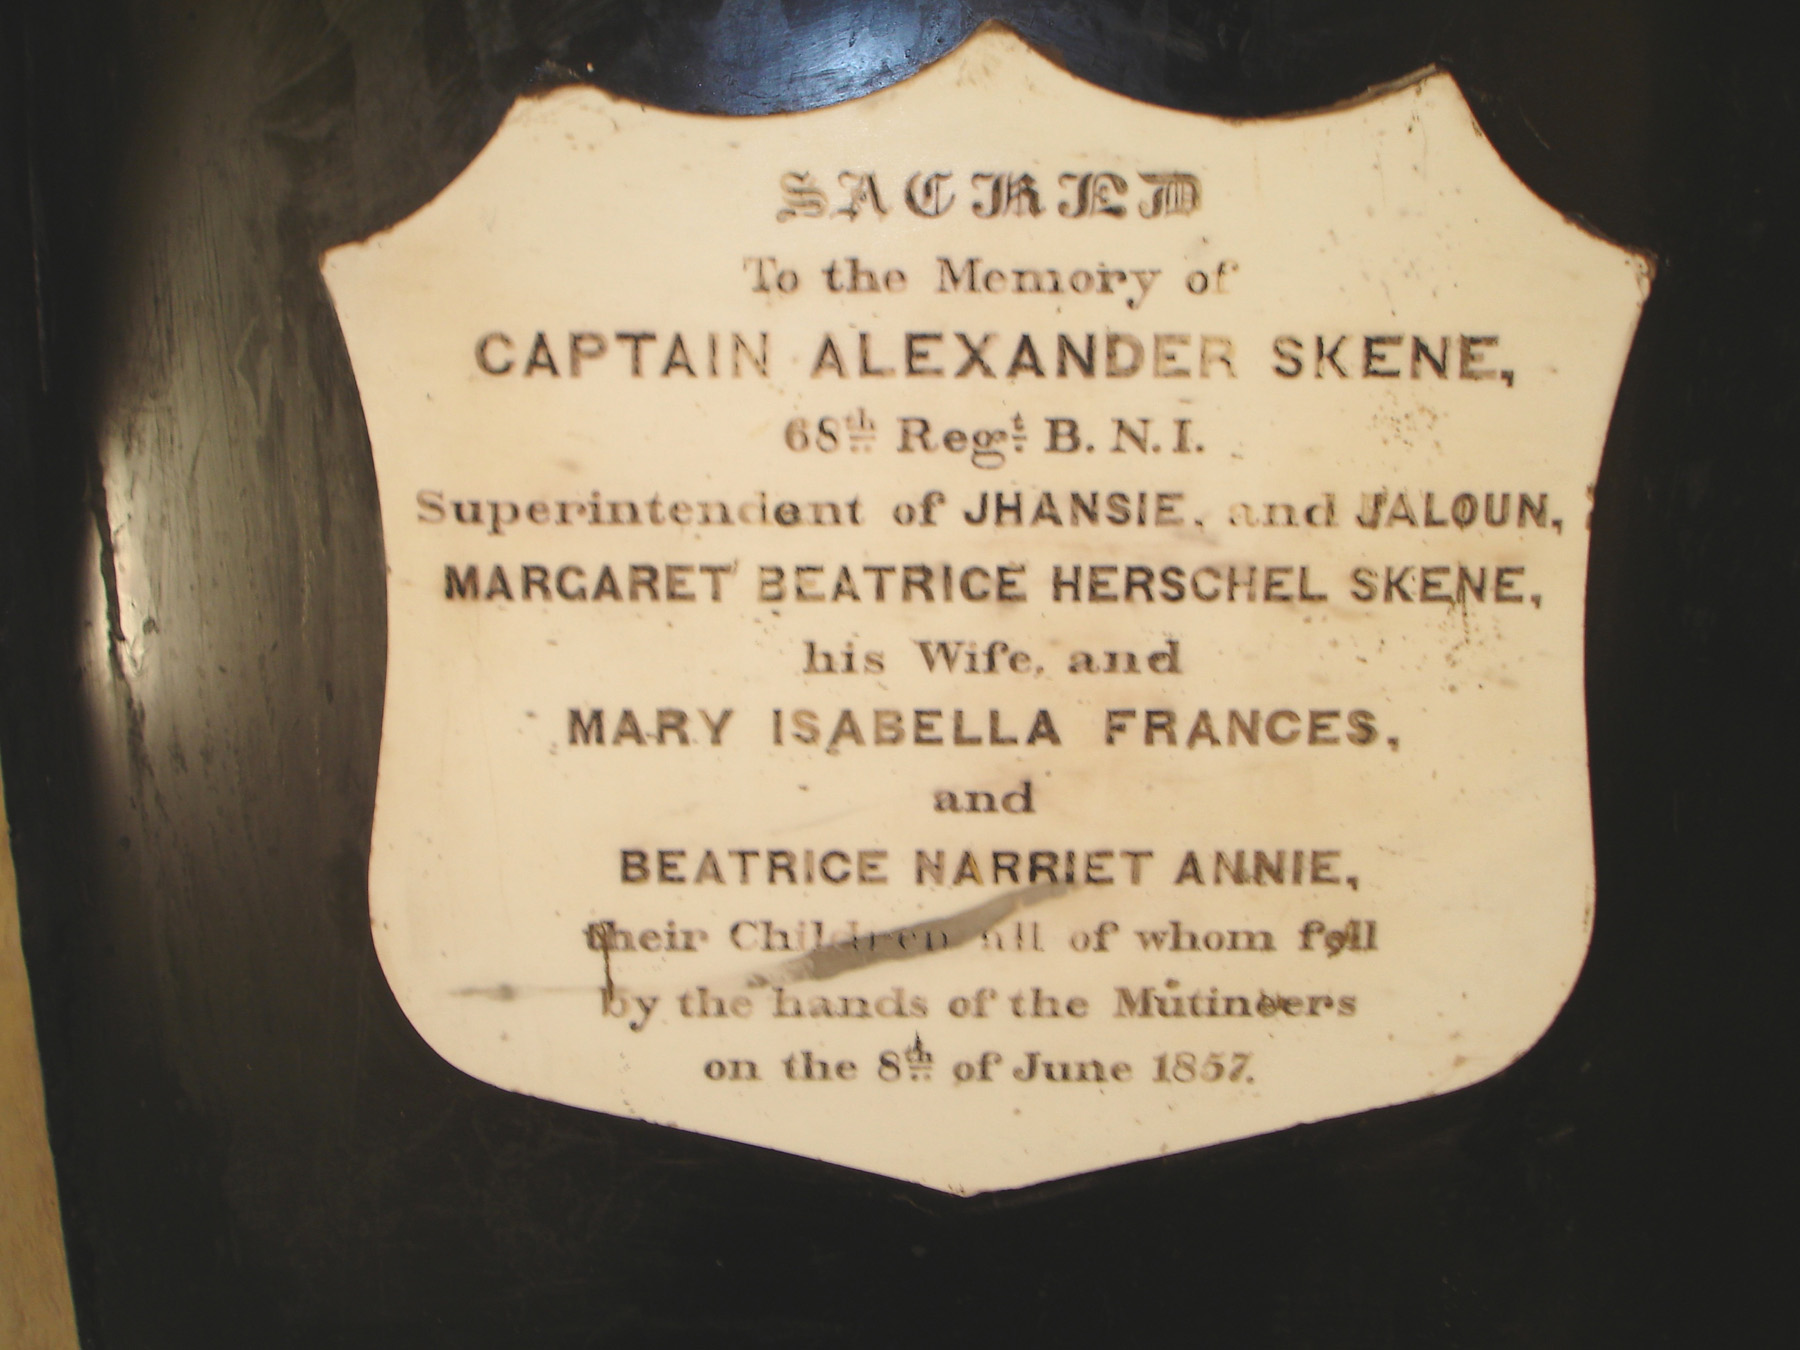 SACRED
To the Memory of
CAPTAIN ALEXANDER SKENE,
68th Regt B. N. I.
Superintendent of JHANSIE, and JALOUN,
MARGARET BEATRICE HERSCHEL SKENE,
his Wife, and
MARY ISABELLA FRANCES,
and
BEATRICE NARRIET ANNIE,
their Children all of whom fell
by the hands of the Mutineers
on the 8th of June 1857.